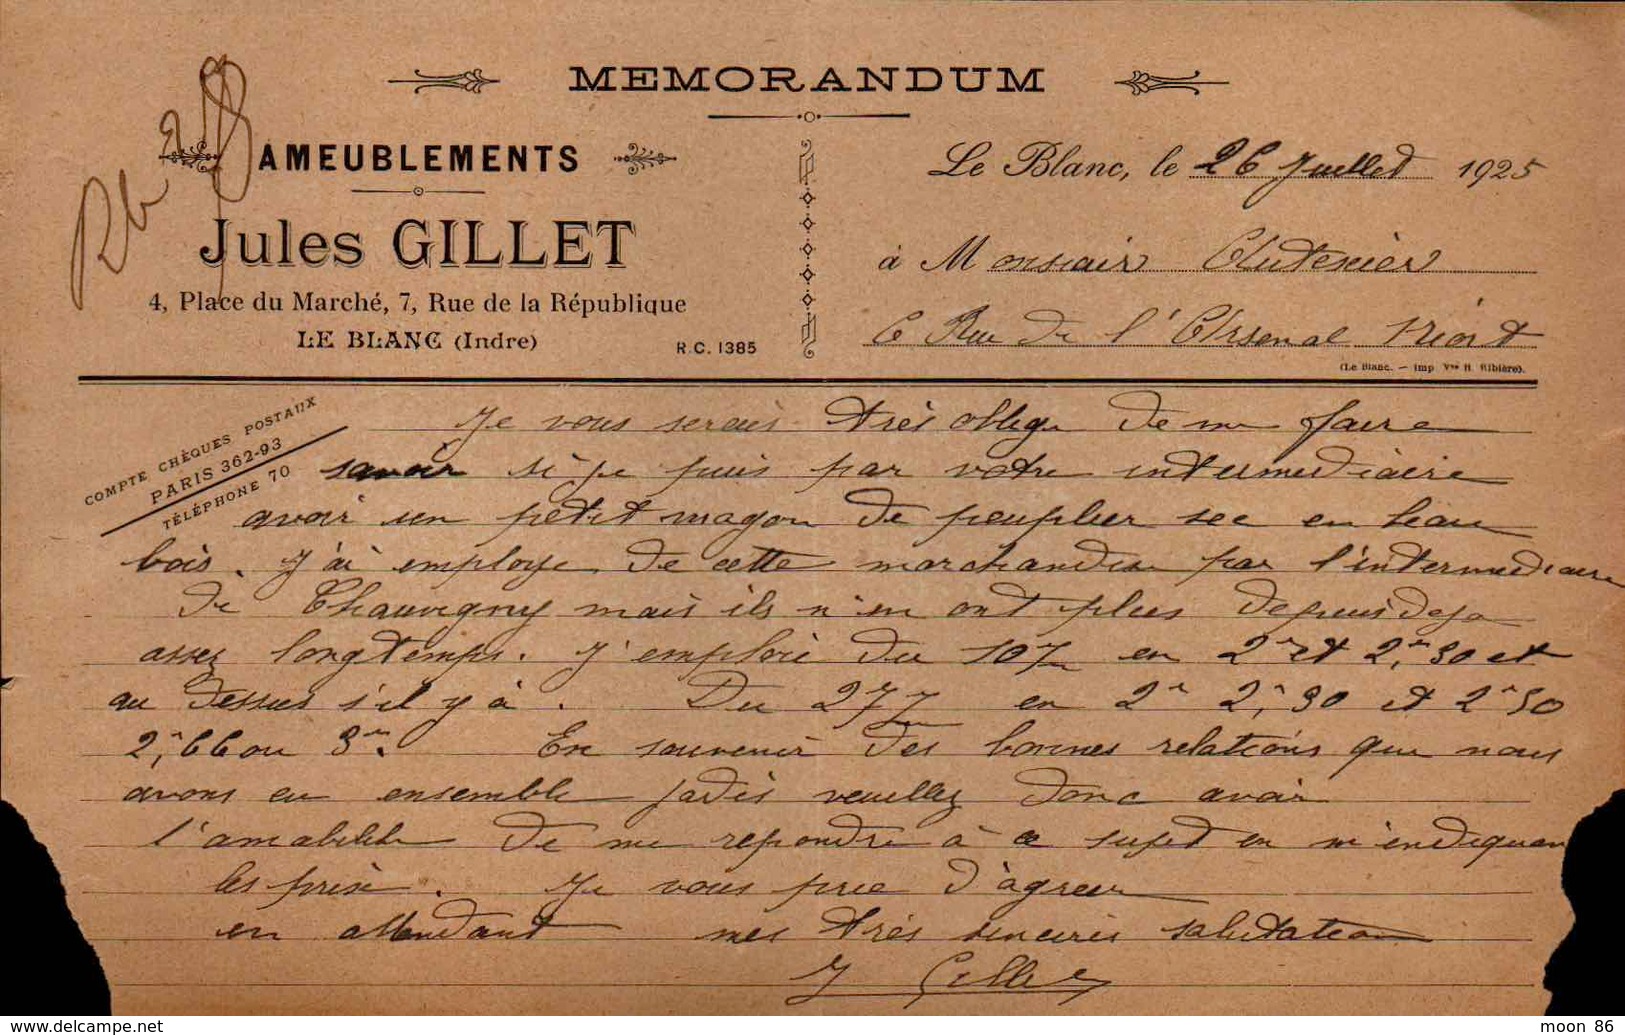 MEMORANDUM
AMEUBLEMENTS
Jules GILLET
4, Place du Marché, 7, Rue de la République
LE BLANC (Indre)
R.C. 1385
Le Blanc, le 26 Juillet 1925
à Monsieur
6 Rue de l'Arsenal Niort
(Le Blanc. — Imp Vve H. Ribière).
COMPTE CHÈQUES POSTAUX
PARIS 362-93
TÉLÉPHONE 70
Je vous serais très oblige de me faire
savoir si je puis par votre intermediaire
avoir un petit wagon de peuplier sec en beau
bois. J'ai employe de cette marchandise par l'intermediaire
de Chauvigny mais ils n'en ont plus depuis deja
assez longtemps. J'emploie du 10 en 2m et 2,m30 et
au dessus s'il y à. Du 27 en 2m 2,m30 et 2m50
2,m66 ou 3m. En souvenir des bonnes relations que nous
avons eu ensemble jadis veuillez donc avoir
l'amabilite de me repondre à ce sujet en m'indiquan
les prix. Je vous prie d'agreer
en attendant mes très sincères salutation
J Gillet
moon 86